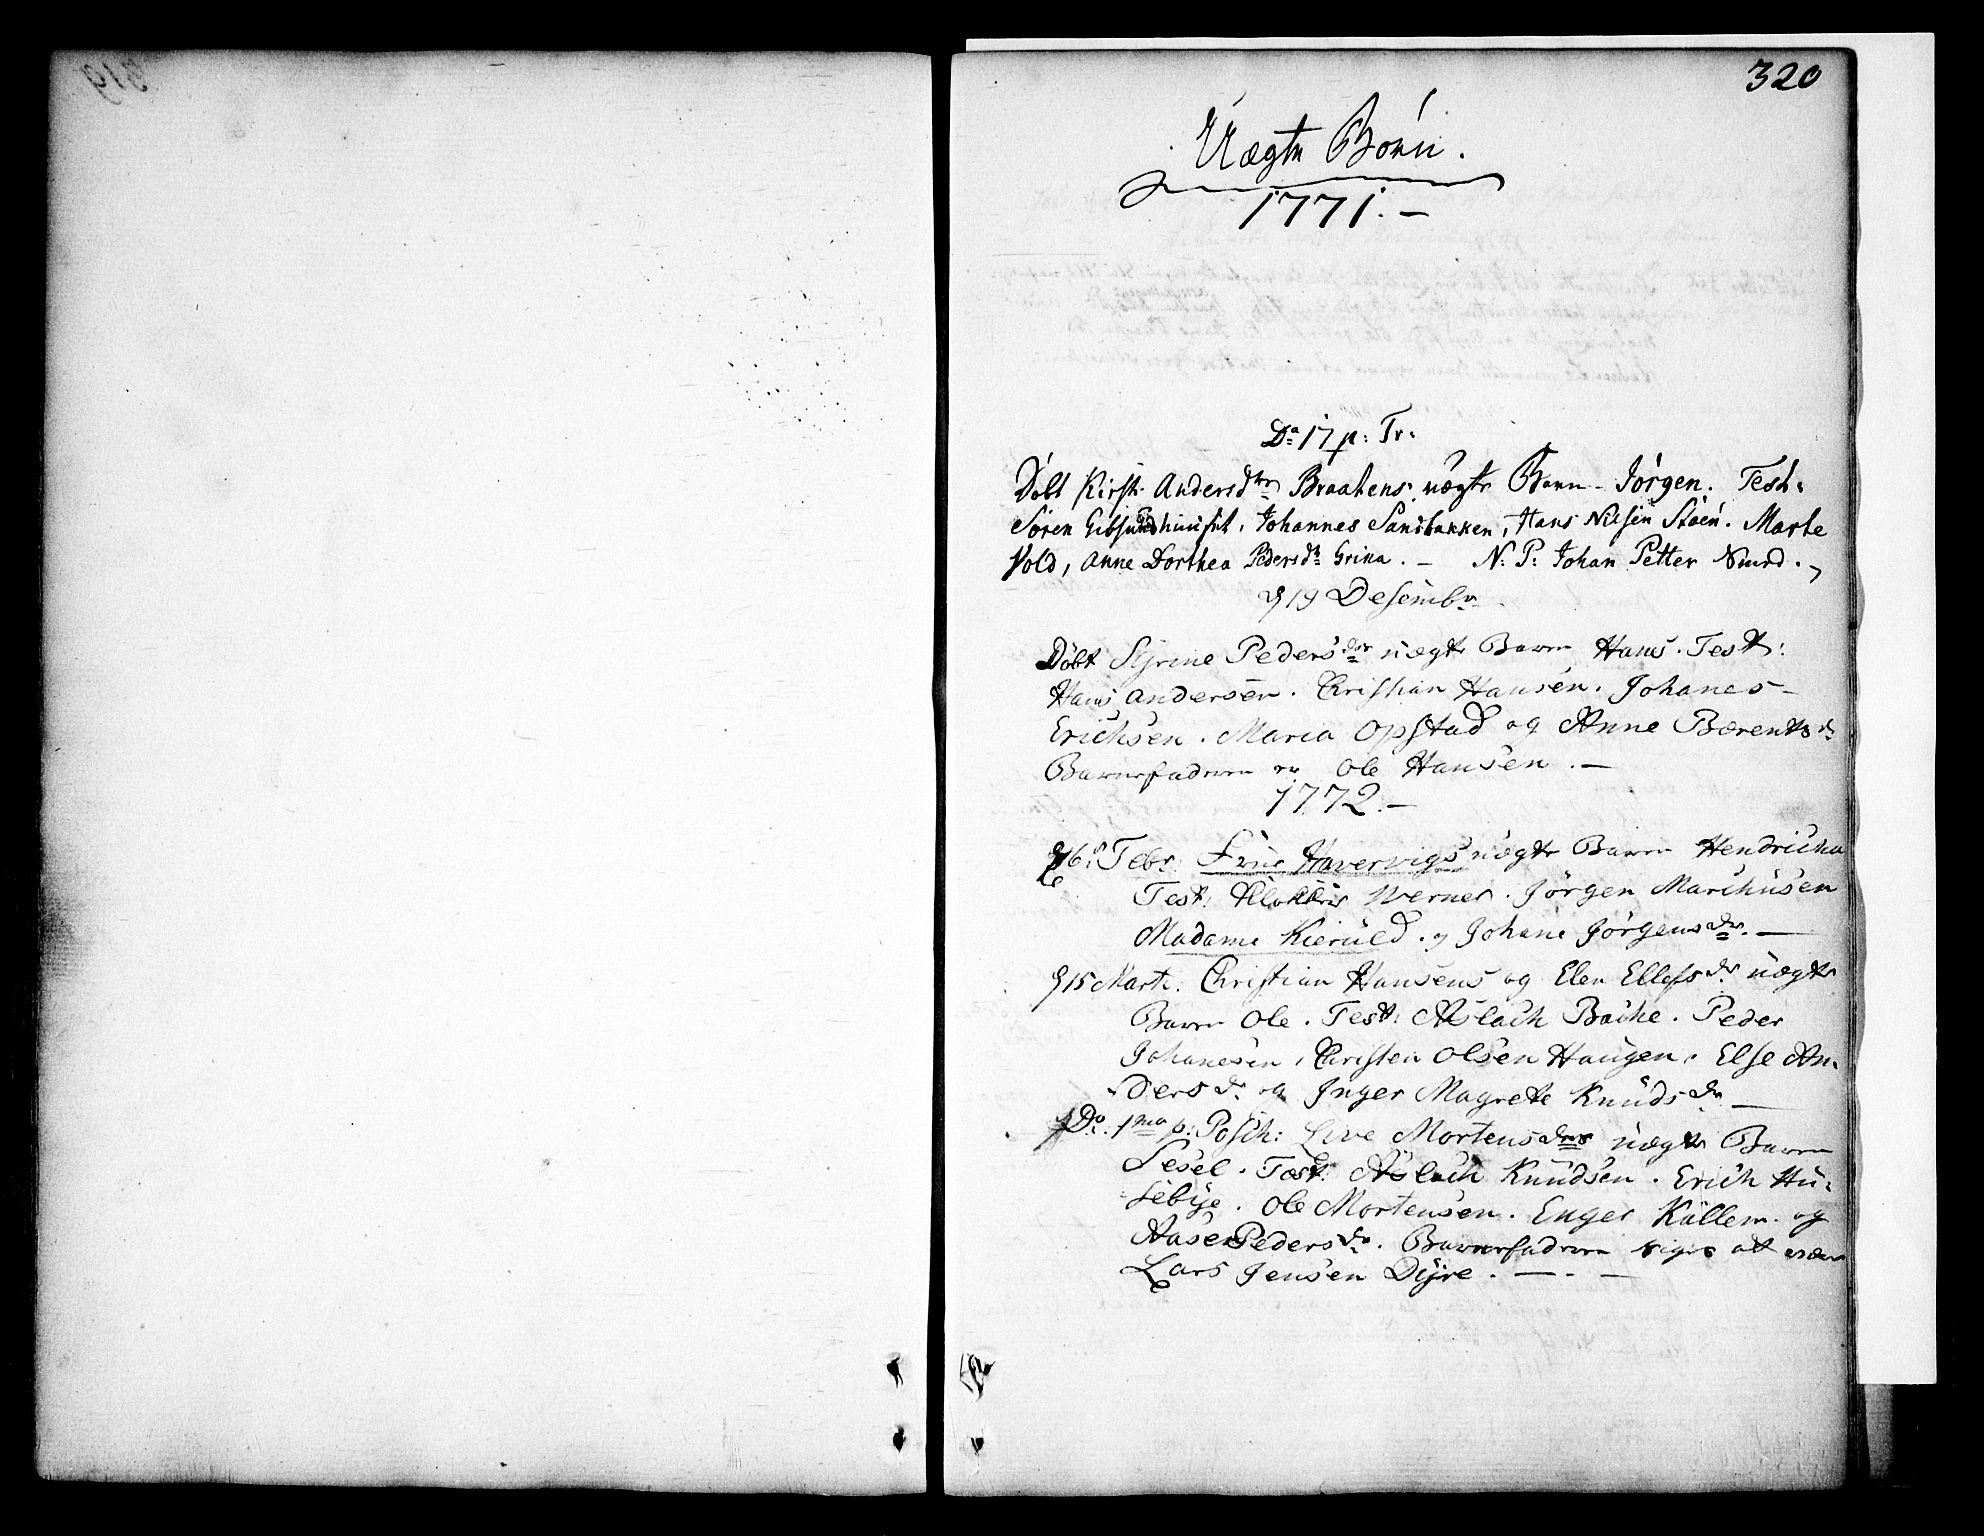 320
Uægte Börn.
1771. –
Da 17 p: Tr:
Döbt Kirsti Andersdtr Braatens uægte Barn – Jörgen. Test:
Sören huuset, Johannes Sandbakken, Hans Nilsen Stöen. Marte
Vold, Anne Dorthea Pedersdr Grina. – N: P: Johan Petter
d 19 Desembr
Döbt Syrine Pedersdtr uægte Barn Hans. Test:
Hans Andersen. Christian Hansen. Johanes
Erichsen. Maria Opstad og Anne Bærentsd
Barnefaderen er Ole Hansen. –
1772. –
d 16 Febr: Haxervigs uægte Barn Hendricha
Test: Werner. Jörgen Marchusen
Madame Kieruld. og Johane Jörgensdr. –
d 15 Marti. Christian Hansens og Elen Ellefsdr uægte
Barn Ole. Test: Aslach Bache. Peder
Johanesen, Christen Olsen Haugen, Else An-
dersdr og Inger Magrete Knudsdr –
Do: 1ma p: Pasch: Live Mortensdrs uægte Barn
Sesel. Test: Aslach Knudsen. Erich Hu-
sebye. Ole Mortensen. Enger Kallem og
Aase Pedersdr. Barnefaderen siges at være
Lars Jensen Dyre. – . –